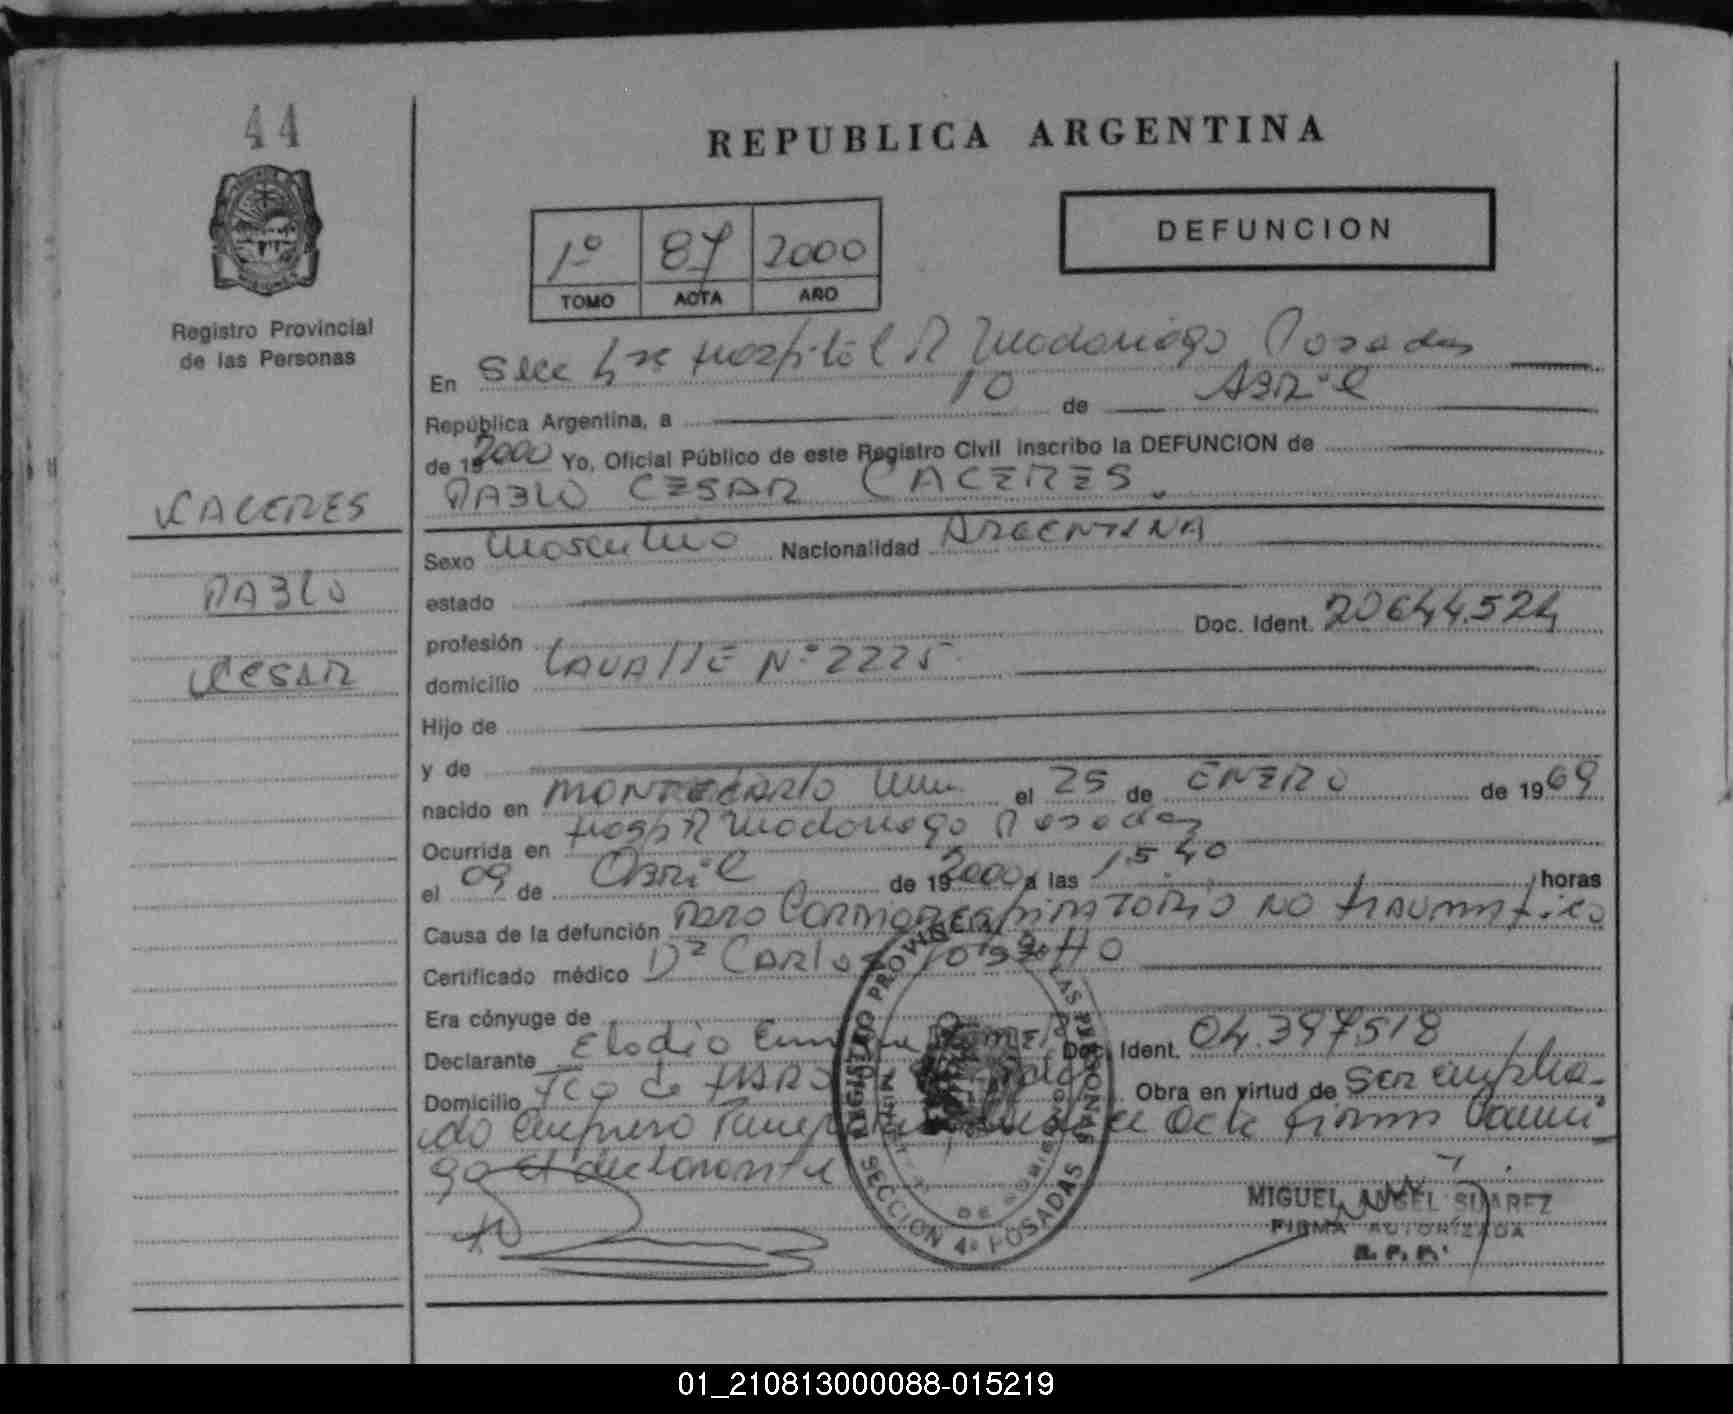 44
REPUBLICA ARGENTINA
1º 87 2000
TOMO ACTA AÑO
DEFUNCION
Registro Provincial
de las Personas
En Secc 4ta Hospital R Madariaga Posadas
República Argentina, a 10 de ABRil
de 192000 Yo, Oficial Público de este Registro Civil inscribo la DEFUNCION de
PABLO CESAR CACERES.
CACERES
PABLO
CESAR
Sexo Masculino Nacionalidad ARGENTINA
estado
profesión Doc. Ident. 20644.524
domicilio LAVAllE Nº 2225
Hijo de
y de
nacido en MONTECARlO el 25 de ENERO de 1969
Ocurrida en Hosp R Madariaga Posadas
el 09 de Abril de 192000 a las 15.40 horas
Causa de la defunción PARO CARDIORESPIRATORIO NO TRAUMATICO
Certificado médico Dr CARlos
Era cónyuge de
Declarante Elodio Doc. Ident. 04.397518
Domicilio Fco de HARO Obra en virtud de ser emplea-
do empresa firma conmi
go el declarante
REGISTRO PROVINCIAL DE LAS PERSONAS
MISIONES
SECCION 4ª POSADAS
MIGUEL ANGEL SUAREZ
FIRMA AUTORIZADA
R. P. P.
01_210813000088-015219